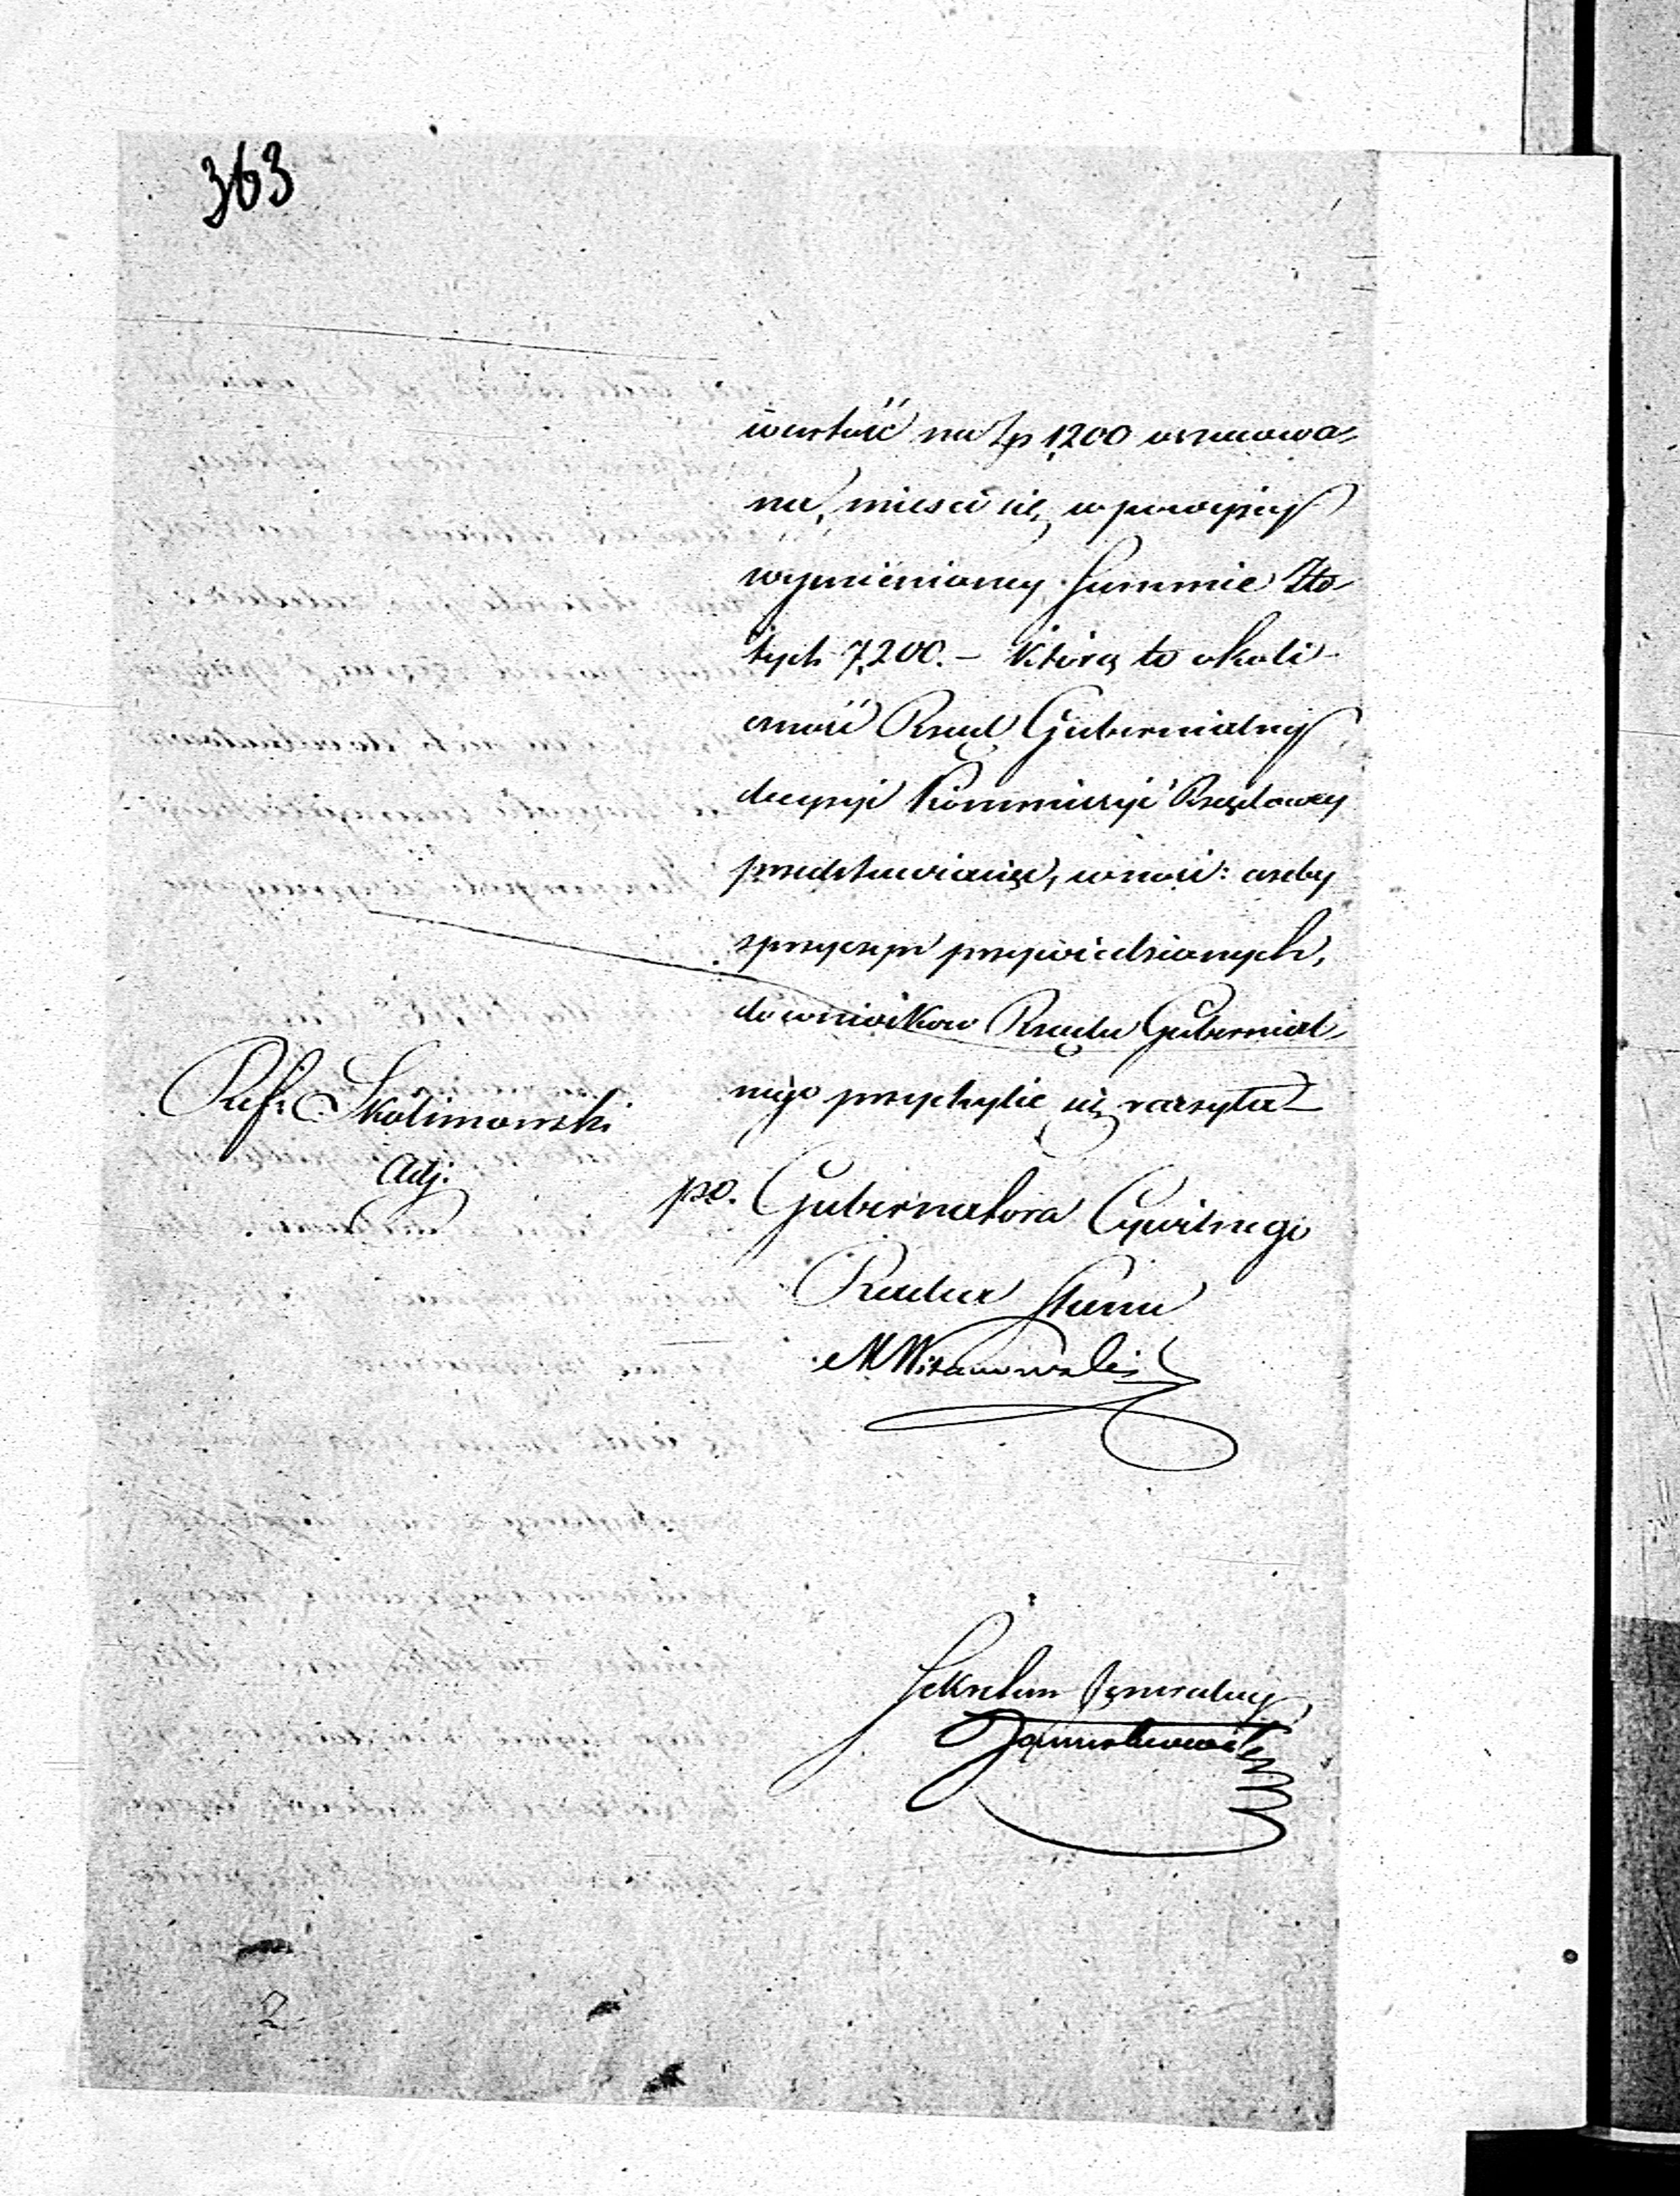 363
wartość na Zp 1200 oszacowa-
na, mieści się w powyżej
wymienioney Summie Zło-
tych 7,200. – Którą to okoli-
czność Rząd Gubernialny
decyzyi Kommissyi Rządowey
przedstawiając, wnosi: ażeby
z przyczyn przywiedzionych,
do wniosków Rządu Gubernial-
nego przychylić się raczyła
Ref: Skolimowski
Adj:
po. Gubernatora Cywilnego
Radca Stanu
Sekretarz Jeneralny
2